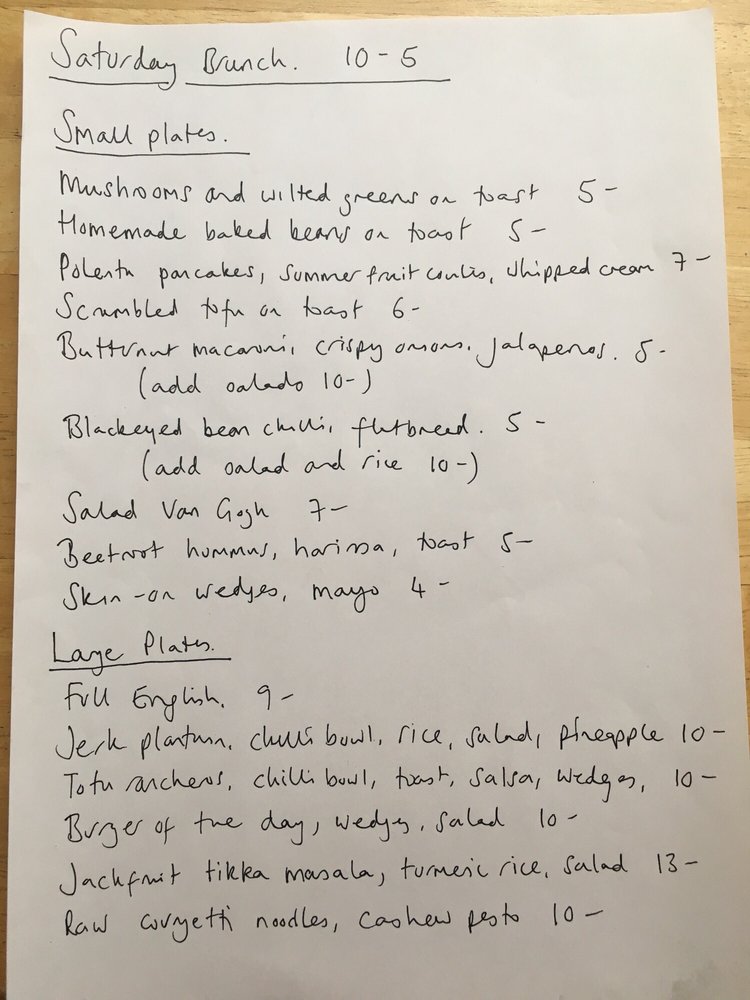 Saturday Brunch. 10-5
Small plates.
Mushrooms and wilted greens on toast 5-
Homemade baked beans on toast 5-
Polenta pancakes, summer fruit coulis, whipped cream 7-
Scrambled tofu on toast 6-
Butternut macaroni, crispy onions, jalapenos. 5-
(add salads 10-)
Blackeyed bean chilli, flatbread. 5-
(add salad and rice 10-)
Salad Van Gogh 7-
Beetroot hummus, harissa, toast 5-
Skin-on wedges, mayo 4-
Large Plates.
Full English. 9-
Jerk plantain, chilli bowl, rice, salad, pineapple 10-
Tofu rancheros, chilli bowl, toast, salsa, wedges, 10-
Burger of the day, wedges, salad 10-
Jackfruit tikka masala, turmeric rice, salad 13-
Raw courgetti noodles, cashew pesto 10-